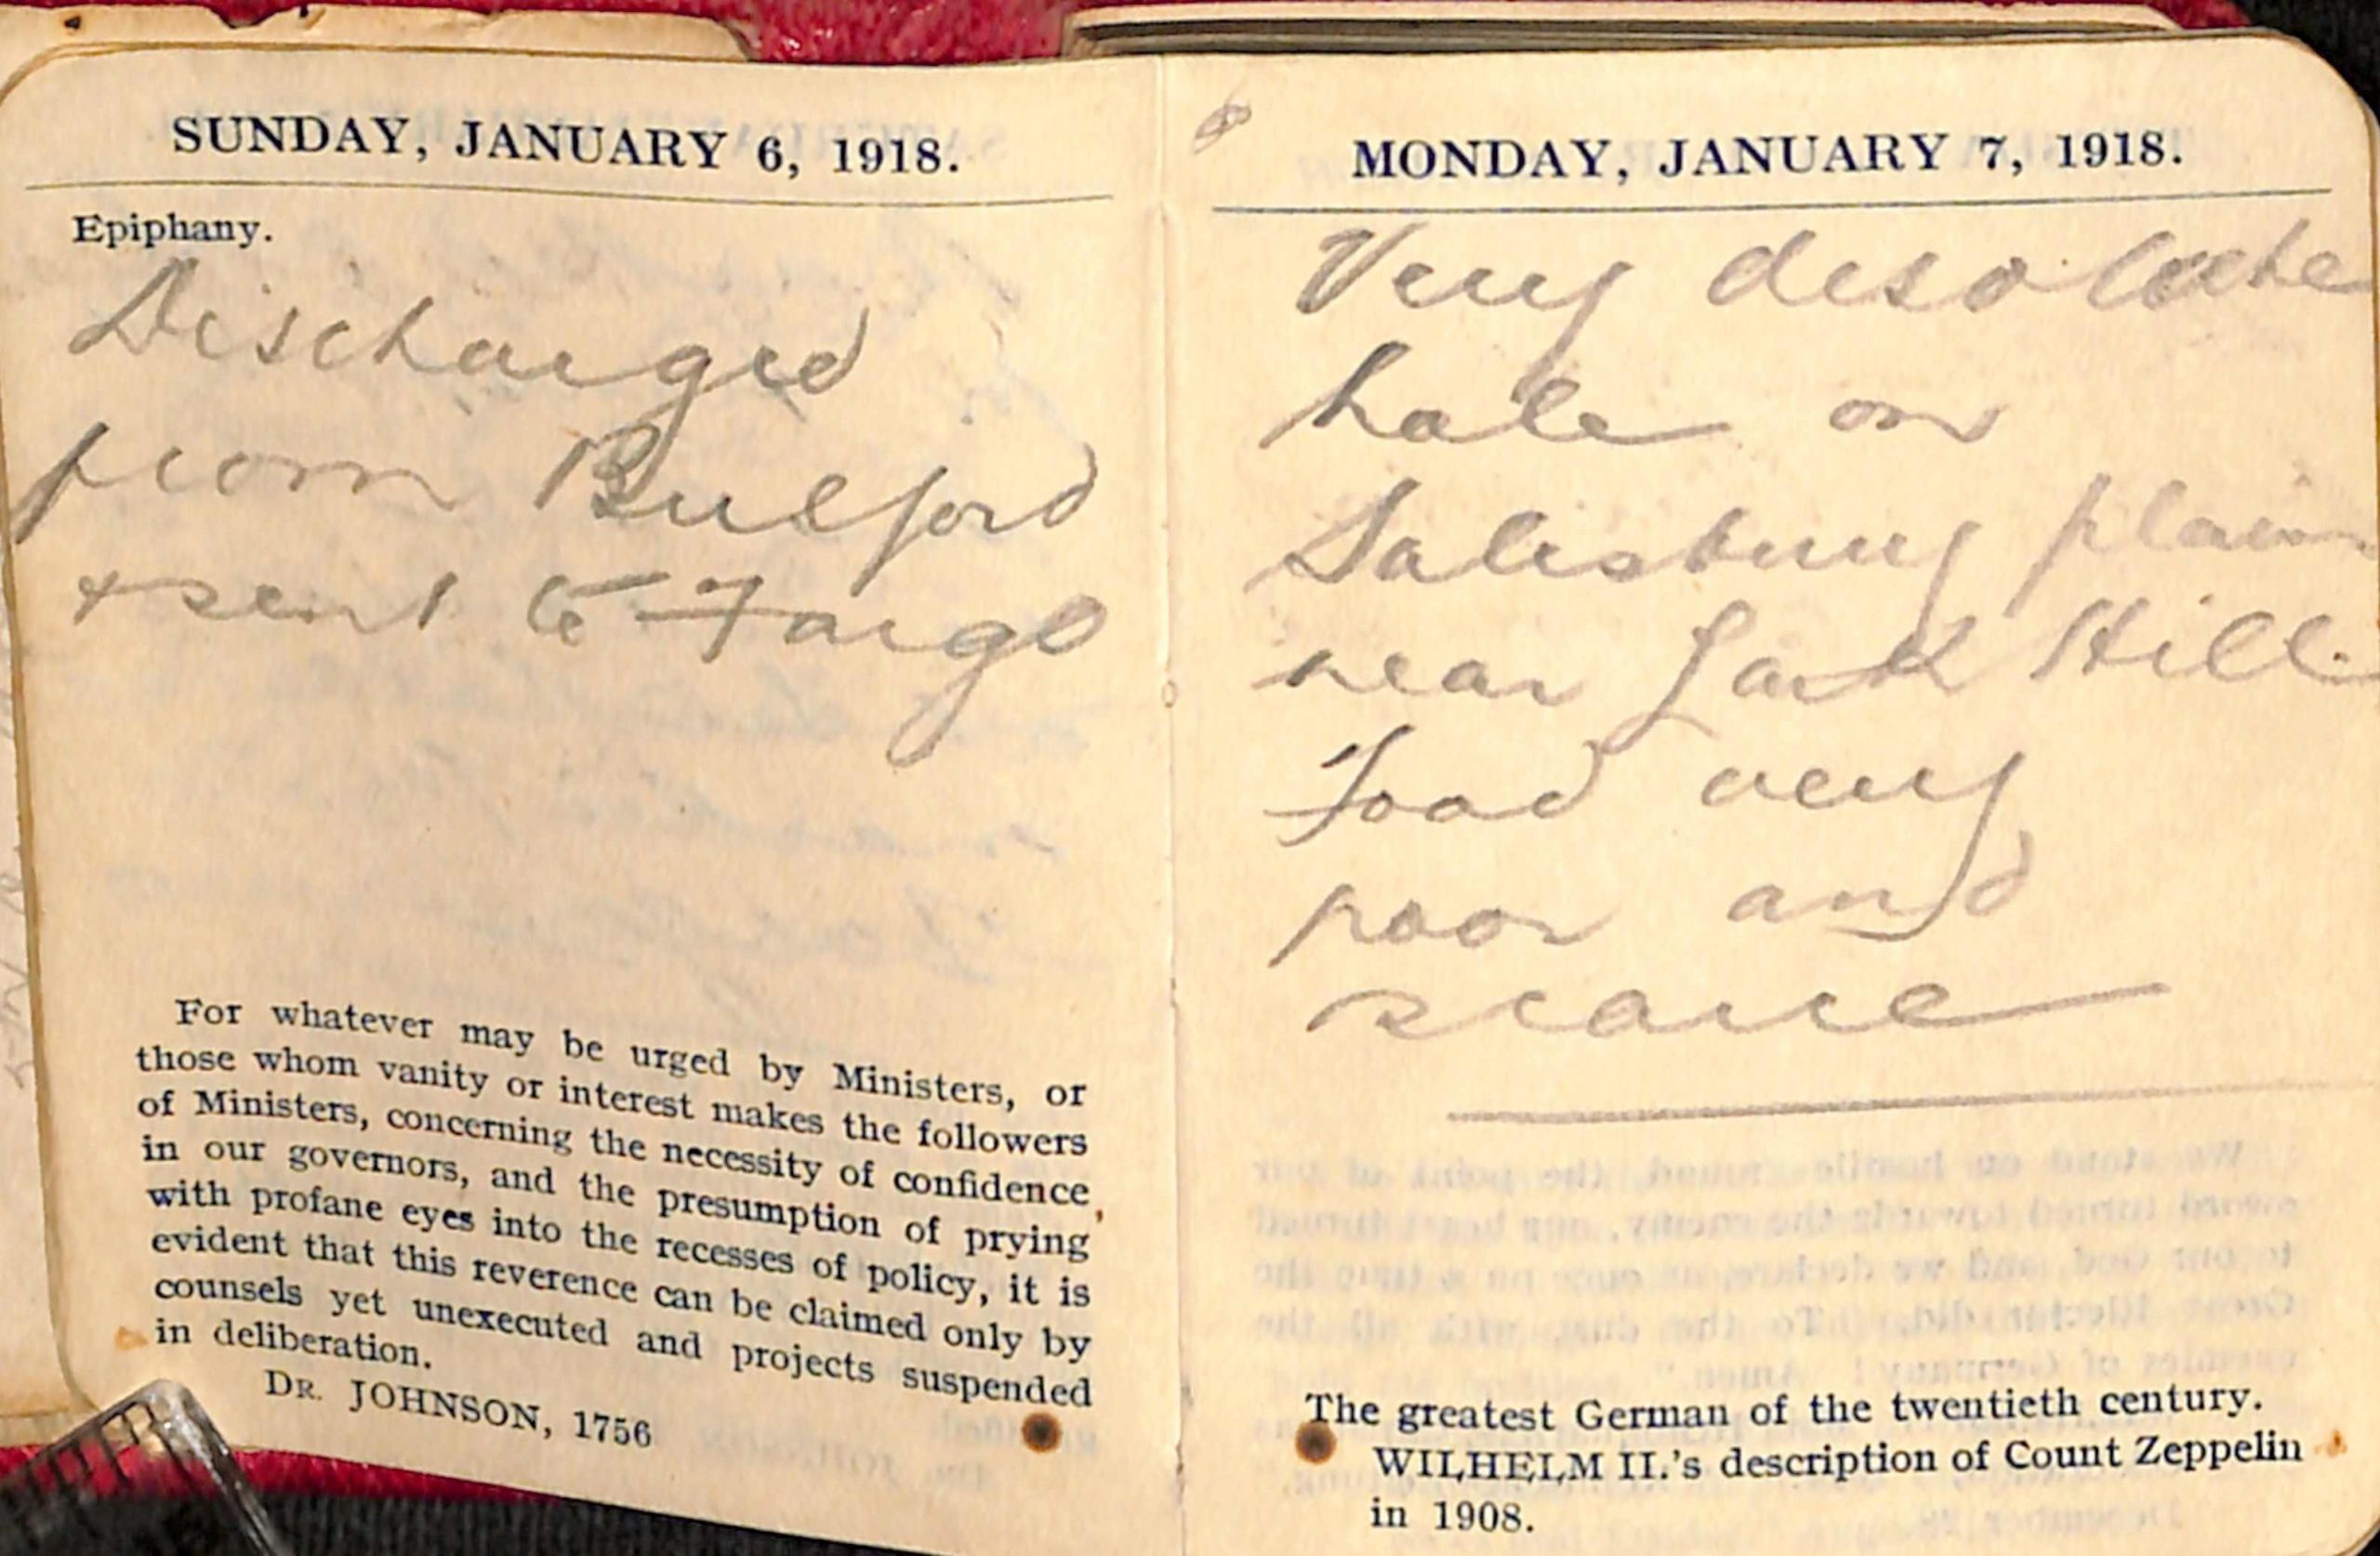 SUNDAY, JANUARY 6, 1918.
Epiphany.
Discharged
from Bulford
+ sent to Fargo
For whatever may be urged by Ministers, or
those whom vanity or interest makes the followers
of Ministers, concerning the necessity of confidence
in our governors, and the presumption of prying
with profane eyes into the recesses of policy, it is
evident that this reverence can be claimed only by
counsels yet unexecuted and projects suspended
in deliberation.
DR. JOHNSON, 1756
MONDAY, JANUARY 7, 1918.
Very desolate
hole on
Salisbury plain
near Lark Hill.
Food very
poor and
scarce
The greatest German of the twentieth century.
WILHELM II.'s description of Count Zeppelin
in 1908.